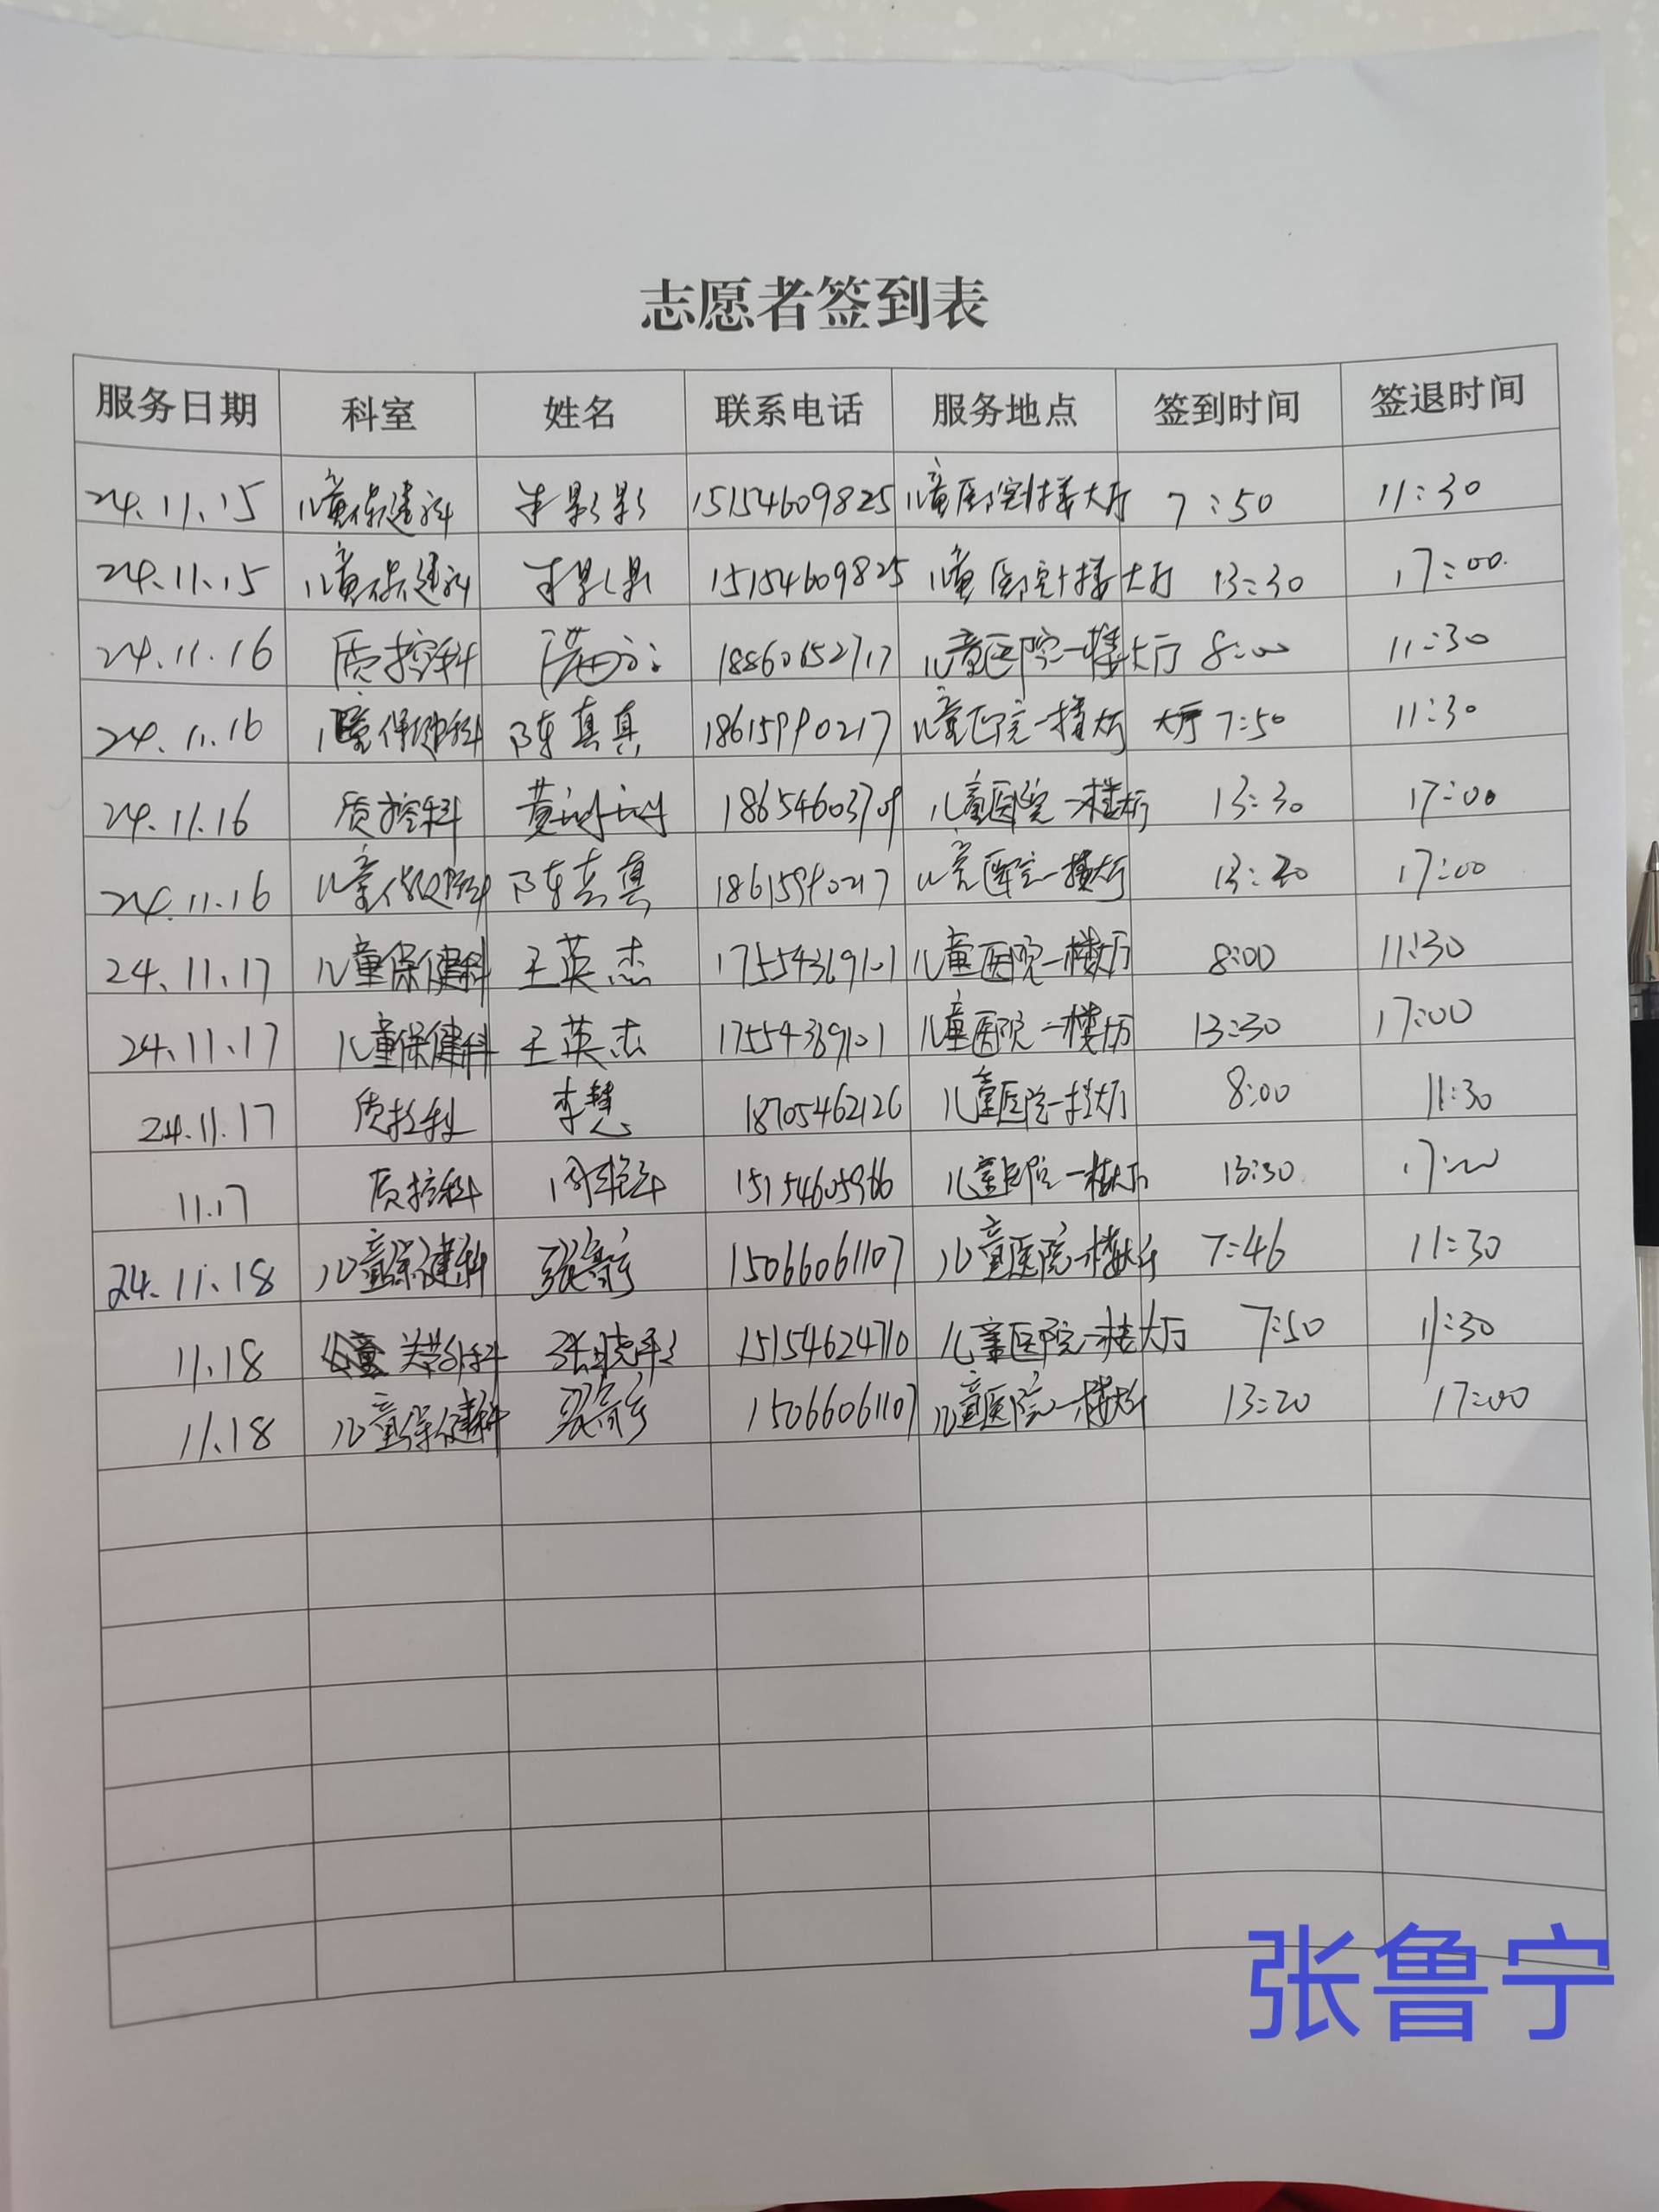 志愿者签到表
服务日期 科室 姓名 联系电话 服务地点 签到时间 签退时间
24.11.15 儿童保健科 影影 15154609825 儿童医院1楼大厅 7:50 11:30
24.11.15 儿童保健科 15154609825 儿童医院1楼大厅 13:30 17:00
24.11.16 质控科 18860152717 儿童医院一楼大厅 8:00 11:30
24.11.16 儿童保健科 陈真真 18615990217 儿童医院一楼大厅 大厅 7:50 11:30
24.11.16 质控科 黄 18654603709 儿童医院一楼大厅 13:30 17:00
24.11.16 儿童保健科 陈真真 18615990217 儿童医院一楼大厅 13:20 17:00
24.11.17 儿童保健科 王英杰 17554369101 儿童医院一楼大厅 8:00 11:30
24.11.17 儿童保健科 王英杰 17554369101 儿童医院一楼大厅 13:30 17:00
24.11.17 质控科 李慧 18705462126 儿童医院一楼大厅 8:00 11:30
11.17 质控科 15154605966 儿童医院一楼大厅 13:30 17:00
24.11.18 儿童保健科 张 15066061107 儿童医院一楼大厅 7:46 11:30
11.18 关节外科 张晓彩 15154624710 儿童医院一楼大厅 7:50 11:30
11.18 儿童保健科 15066061107 儿童医院一楼大厅 13:20 17:00
张鲁宁